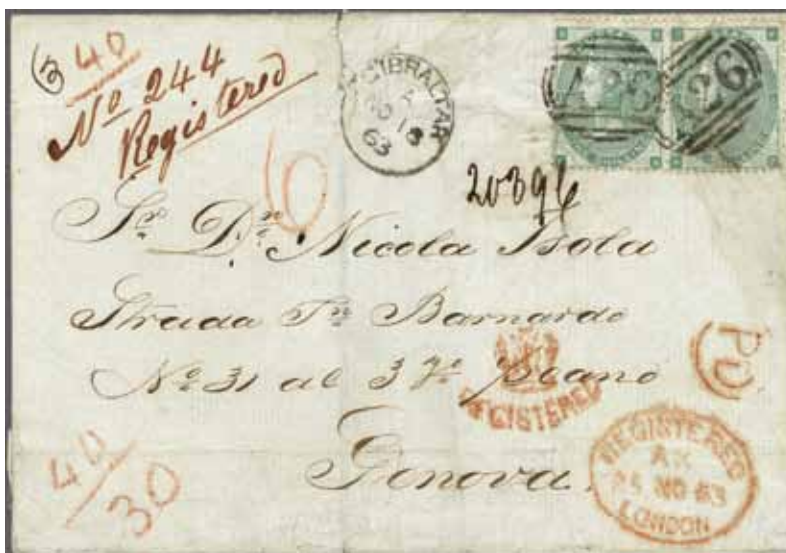 40
No 244
Registered
GIBRALTAR
A
NO 18
63
A26
A26
6
20396
Sr. Dn. Nicola Isola
Strada Sn Barnardo
No 31 al 3 piano
Genova.
REGISTERED
PD
REGISTERED
25 NO 63
LONDON
40/30